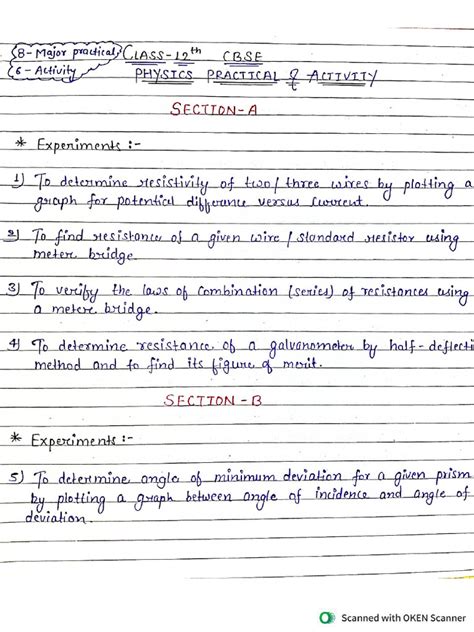 8-Major practical,
6-Activity
CLASS-12th CBSE
PHYSICS PRACTICAL & ACTIVITY
SECTION-A
* Experiments :-
1) To determine resistivity of two/three wires by plotting a
graph for potential difference versus current.
2) To find resistance of a given wire / standard resistor using
meter bridge.
3) To verify the laws of combination (series) of resistances using
a metere bridge.
4) To determine resistance of a galvanometer by half-deflecti
method and to find its figure of merit.
SECTION-B
* Experiments :-
5) To determine angle of minimum deviation for a given prism
by plotting a graph between angle of incidence and angle of
deviation.
Scanned with OKEN Scanner